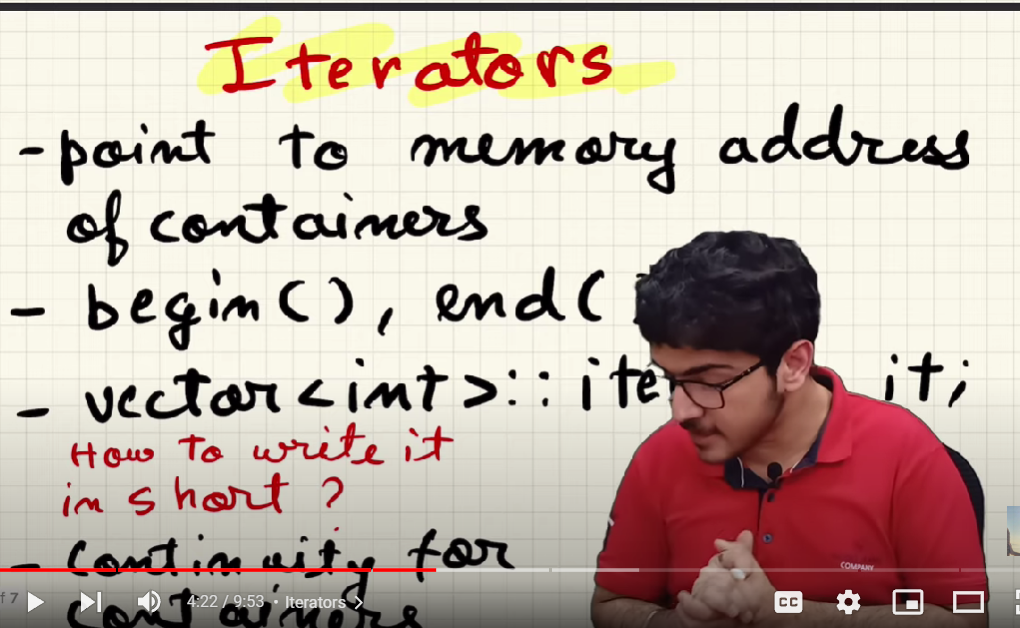 Iterators
- point to memory address
of containers
- begin(), end(
- vector<int>::ite it;
How to write it
in short ?
- Continuity for
containers
COMPANY
of 7 4:22 / 9:53 • Iterators
CC